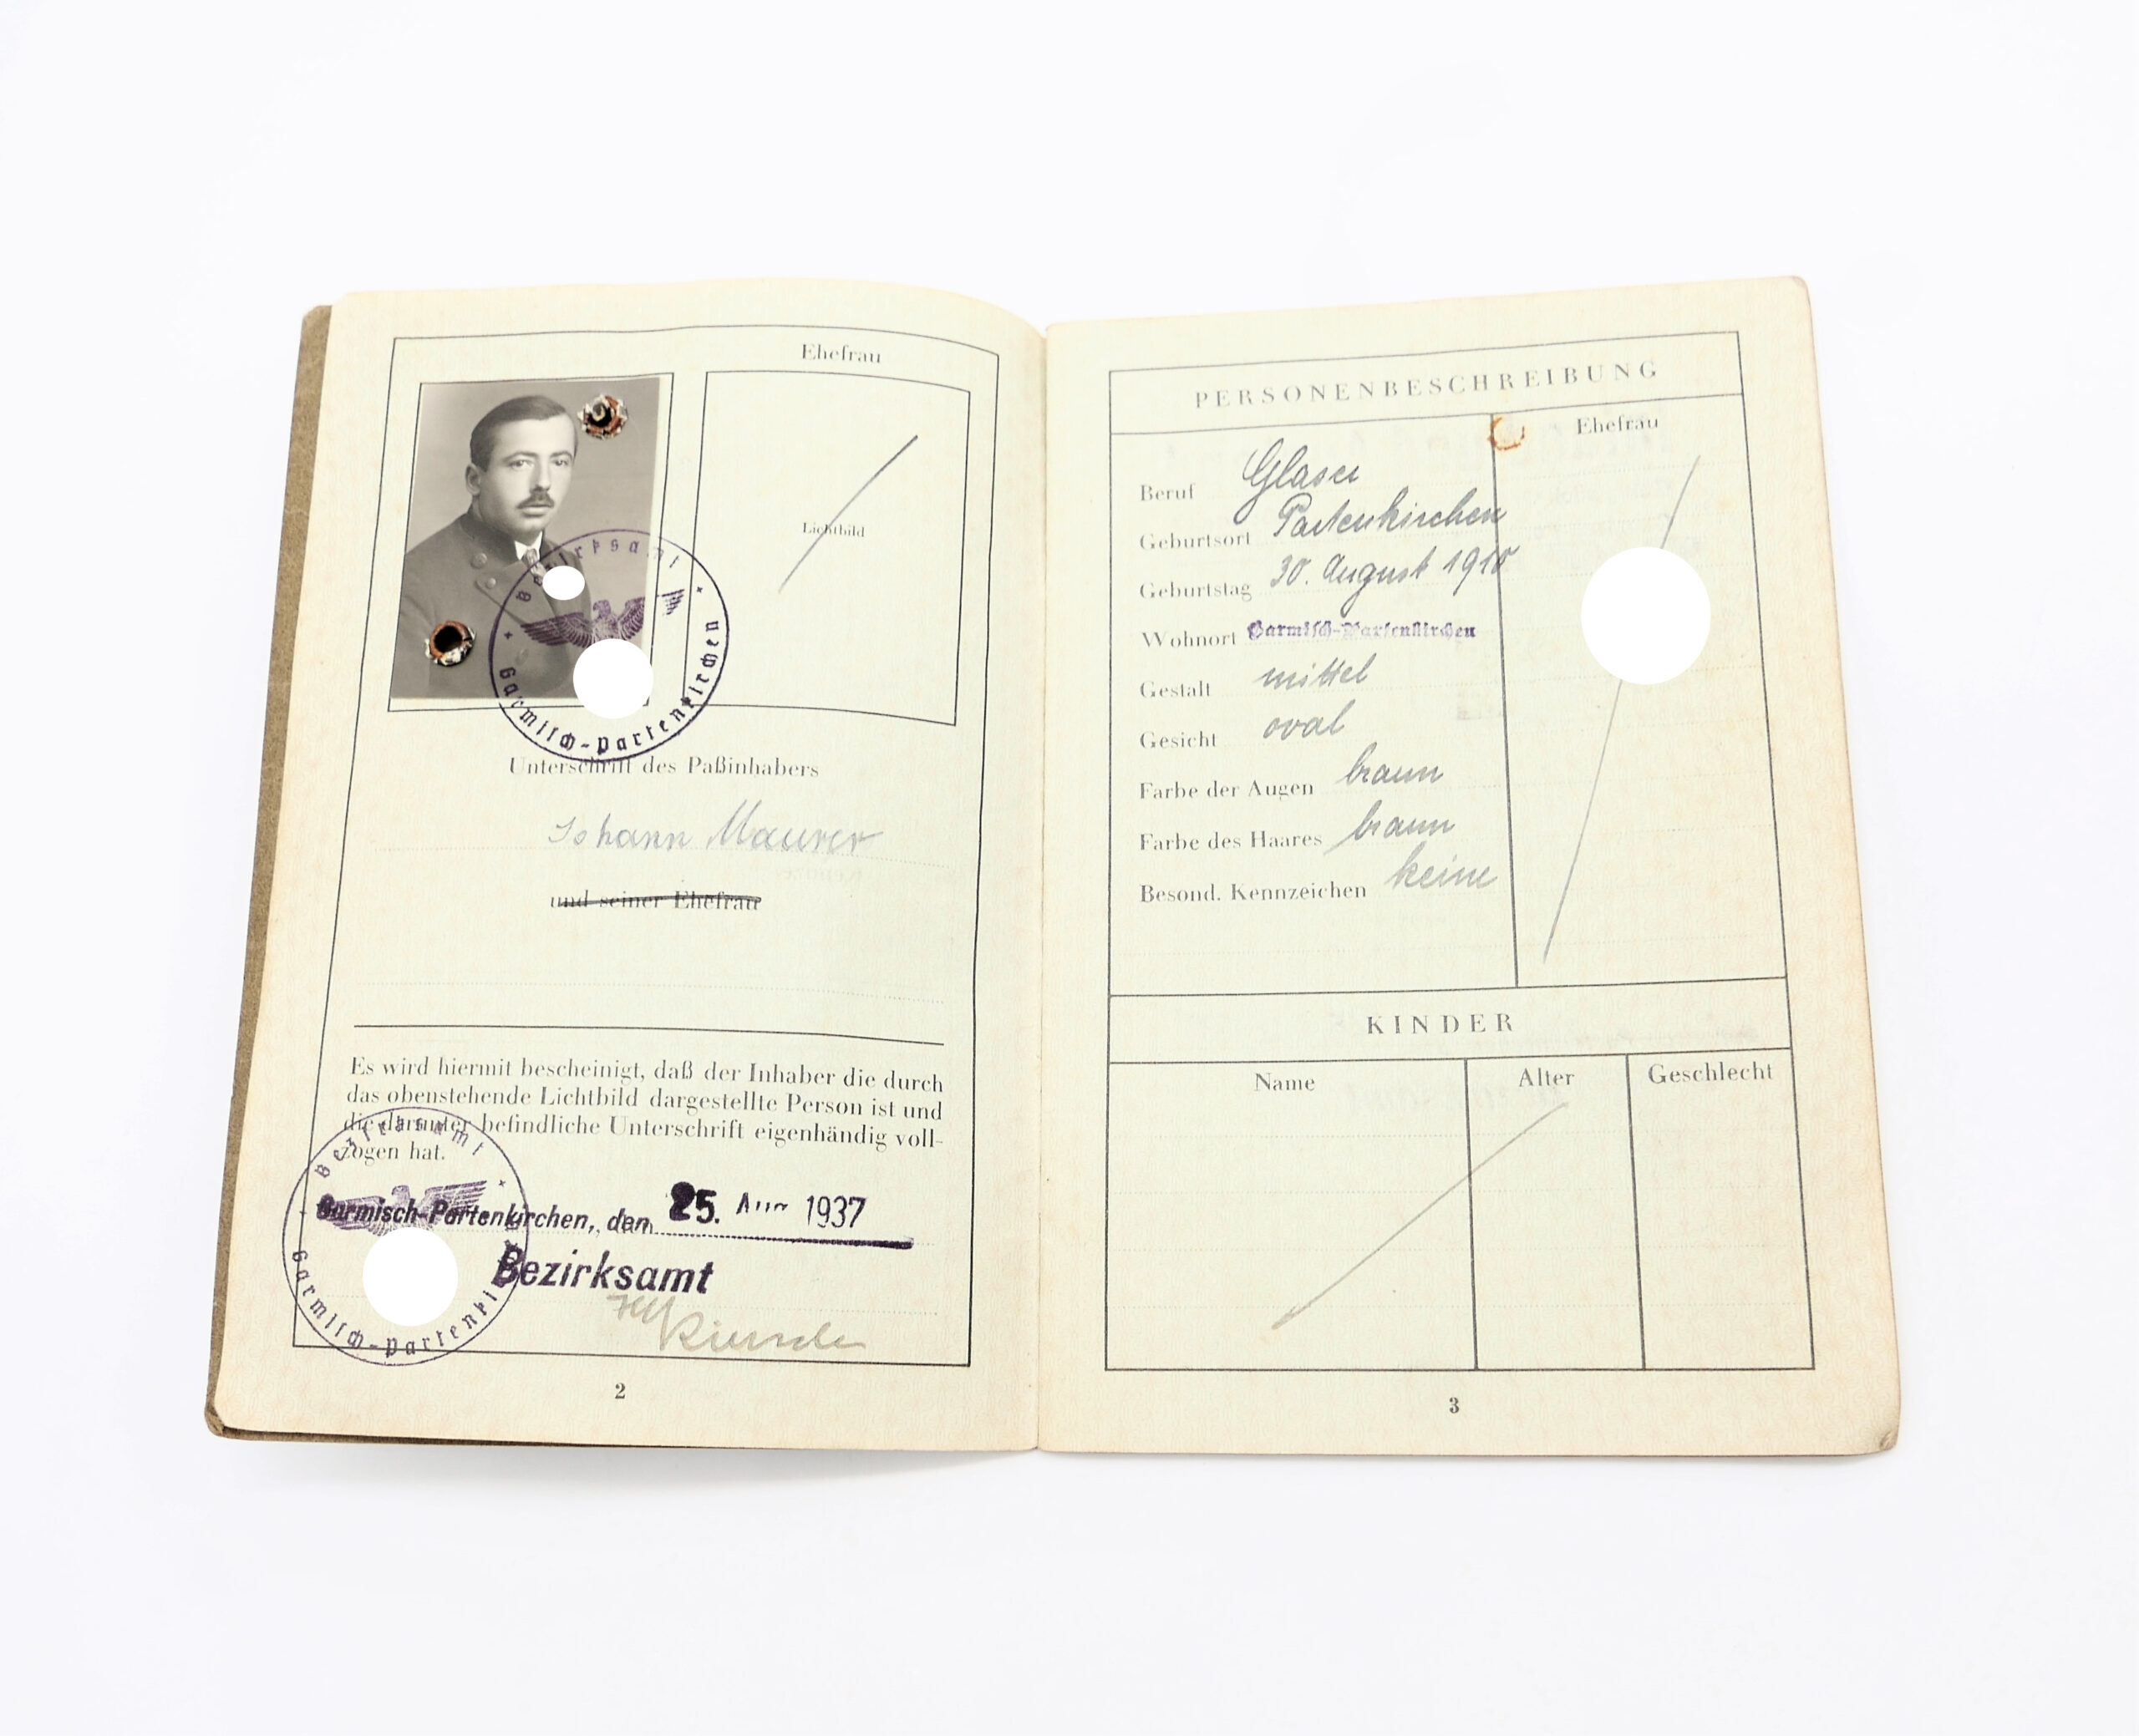 Ehefrau
Lichtbild
Bezirksamt
Garmisch-Partenkirchen
Unterschrift des Paßinhabers
Johann Maurer
und seiner Ehefrau
Es wird hiermit bescheinigt, daß der Inhaber die durch
das obenstehende Lichtbild dargestellte Person ist und
die darunter befindliche Unterschrift eigenhändig voll-
zogen hat.
Bezirksamt
Garmisch-Partenkirchen, den 25. 1937
Bezirksamt
Garmisch-Partenkirchen
2
PERSONENBESCHREIBUNG
Ehefrau
Beruf Glaser
Geburtsort Partenkirchen
Geburtstag 30. August 1910
Wohnort Garmisch-Partenkirchen
Gestalt mittel
Gesicht oval
Farbe der Augen braun
Farbe des Haares braun
Besond. Kennzeichen keine
KINDER
Name Alter Geschlecht
3